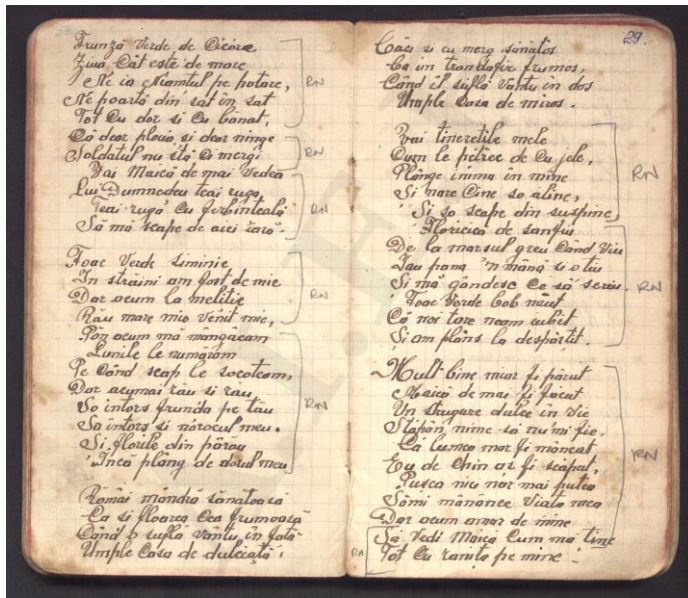 Frunză Verde de Cicóre
Ziua Cât este de mare
Ne ia Niamtul pe potore,
Ne poartă din sat în sat
Tot Cu dor si Cu banat,
Că dear ploia si dear ninge
Soldatul nu stă Ci mergi
Vai Maică de mai Vedea
Lui Dumnedeu teai ruga,
Teai rugă Cu ferbinteală
Să mă scape de aici iară.
RN
RN
RN
Foae Verde siminie
In străini am fost de mic
Dar acum la melitie
Rău mare mio venit mie,
Păn acum mă mângăeam
Lunile le numaram
Pe Când scap le socoteam,
Dar acumai rău si rău
So intors frunda pe tău
So intors si nărocul meu.
Si florile din părău
Incă plâng de dorul meu
RN
RN
Rămăi măndră sănatoasă
Ca si floarea Cea frumoasă
Când o suflă Vântu in fată
Umple Casa de dulceată.
29.
Căci si eu merg sănătos
Ca un trandafir frumos,
Când il suflă Văntu in dos
Umple Casa de miros.
Vai tineretile mele
Cum le petrec de Cu jele,
Plânge inima in mine
Si nare Cine so aline,
Si so scape din suspine
RN
Floricica de sanfiu
De la marsul greu Când Viu
Iau pana 'n mână si o tiu
Si mă găndesc Ce să scriu.
Foae Verde bob năut
Că noi tare neam iubit
Si am plâns la despărtit.
RN
Mult bine miar fi părut
Maică de mai fi făcut
Un strugure dulce in Vie
Stăpân nime să nu'mi fie.
Că lumea mar fi mâncat
Eu de Chin as fi scăpat,
Pusca nici nar mai putea
Sămi mănânce Viata mea
Dar acum amar de mine
Să Vedi Maică Cum mă tine
Tot Cu ranita pe mine.
RN
RN